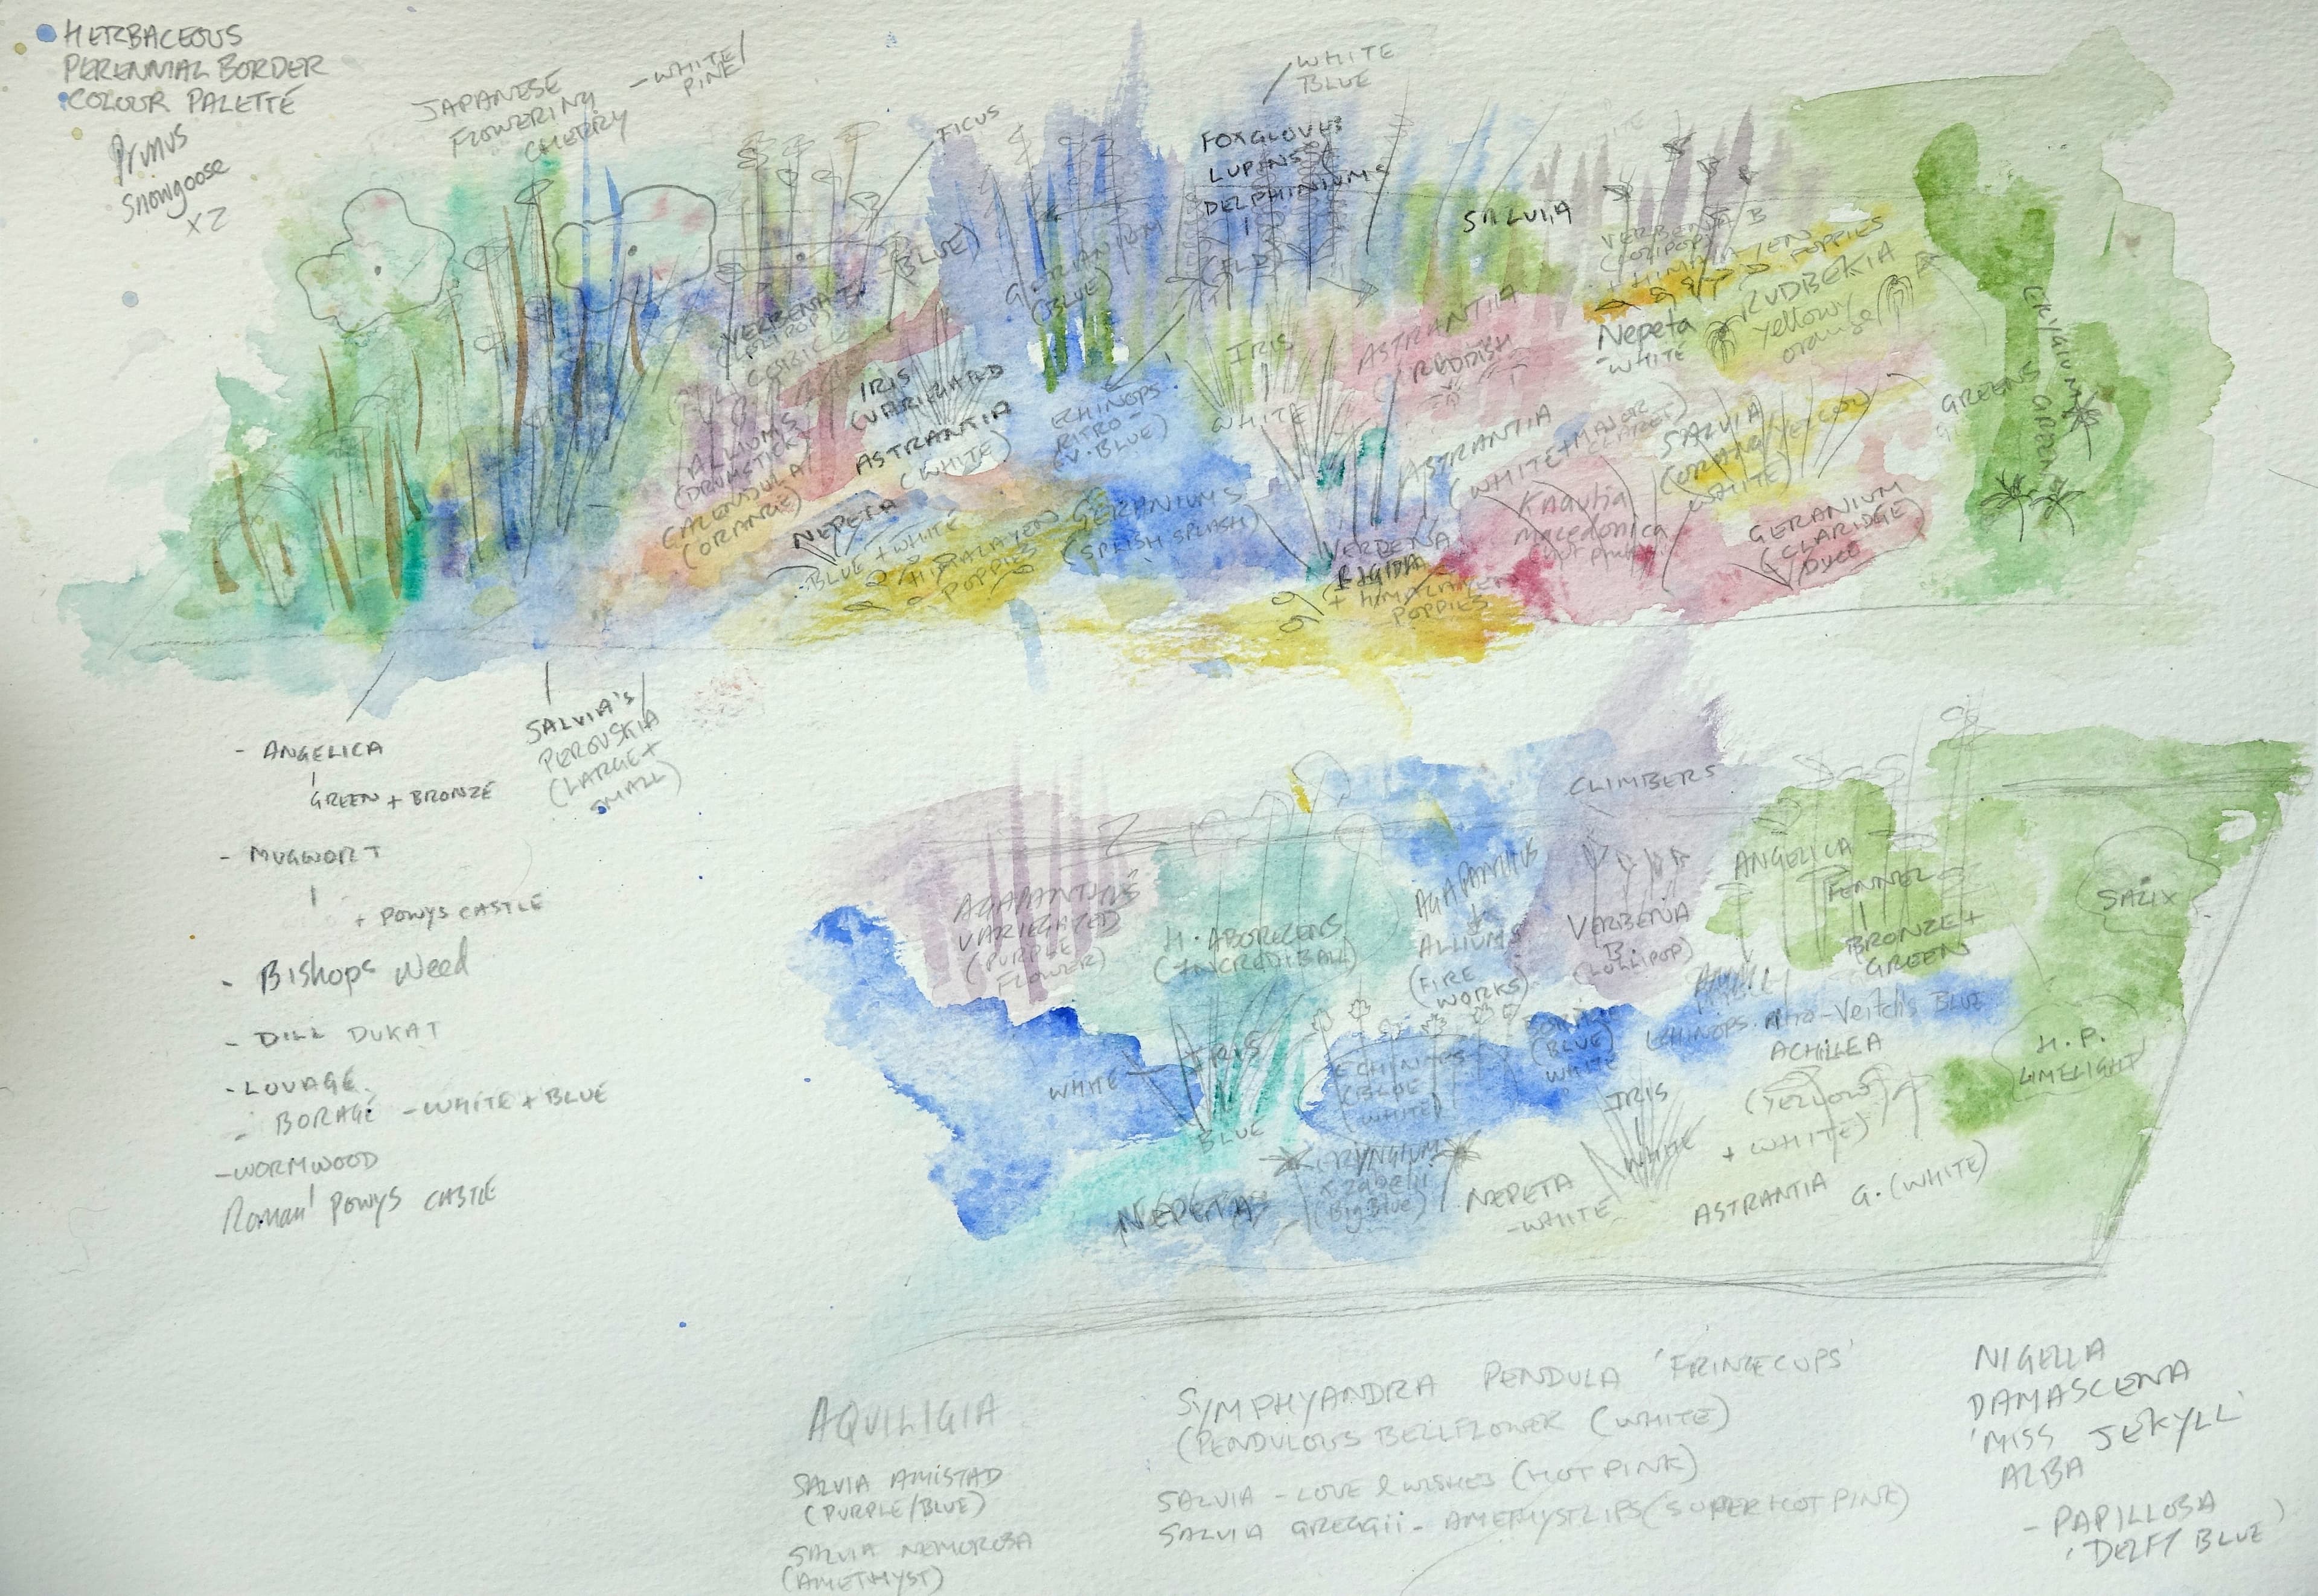 HERBACEOUS
PERENNIAL BORDER
COLOUR PALETTE
Prunus
Snowgoose
x2
JAPANESE
FLOWERING
CHERRY
- WHITE/
PINK
FICUS
(BLUE)
WHITE
BLUE
FOXGLOVES
LUPINS
DELPHINIUMS
SALVIA
VERBENA B
(LOLIPOP)
POPPIES
RUDBEKIA
yellowy
orange
Nepeta
- WHITE
ERYNGIUM
GREENS
GREENS
GERANIUM
(BLUE)
VERBENA B
(LOLIPOP)
IRIS
(VARIEGATED
ASTRANTIA
(WHITE)
ALLIUMS
(DRUMSTICK)
CALENDULA
(ORANGE)
NEPETA
- BLUE + WHITE
HIMALAYEN
POPPIES
EHINOPS
RITRO
(V. BLUE)
GERANIUMS
(SPLISH SPLASH)
IRIS
WHITE
ASTRANTIA
(REDDISH
ASTRANTIA
(WHITE + MAJOR
CLARET)
SALVIA
(ORANGE/YELLOW
WHITE)
Knautia
macedonica
(hot pink)
GERANIUM
(CLARIDGE)
DRUCE
VERBENA
RIGIDA
+ HIMALAYEN
POPPIES
- ANGELICA
GREEN + BRONZE
- MUGWORT
+ POWYS CASTLE
- Bishops Weed
- DILL DUKAT
- LOVAGE
- BORAGE - WHITE + BLUE
- WORMWOOD
Roman' POWYS CASTLE
SALVIA'S
PEROVSKIA
(LARGE +
SMALL)
CLIMBERS
AGAPANTHUS
VARIEGATED
(PURPLE
FLOWER)
H. ABORECENS
(INCREDIBALL)
AGAPANTHUS
+
ALLIUMS
(FIRE
WORKS)
VERBENA
B.
(LOLLIPOP)
ANGELICA
FENNEL
BRONZE +
GREEN
SALIX
WHITE
IRIS
BLUE
ECHINOPS
(BLUE
WHITE)
BORAGE
(BLUE)
WHITE
ECHINOPS. Ritro-Veitch's BLUE
ACHILLEA
(YELLOW)
+ WHITE)
H. P.
LIMELIGHT
IRIS
WHITE
NEPETA
ERYNGIUM
X Zabelii
(Big Blue)
NEPETA
- WHITE
ASTRANTIA G. (WHITE)
AQUILIGIA
SALVIA AMISTAD
(PURPLE/BLUE)
SALVIA NEMOROSA
(AMETHYST)
SYMPHYANDRA PENDULA 'FRINGECUPS'
(PENDULOUS BELLFLOWER (WHITE)
SALVIA - LOVE & WISHES (HOT PINK)
SALVIA GREGGii - AMETHYST LIPS (SUPER HOT PINK)
NIGELLA
DAMASCENA
'MISS JEKYLL'
ALBA
- PAPILLOSA
'DELFT BLUE'